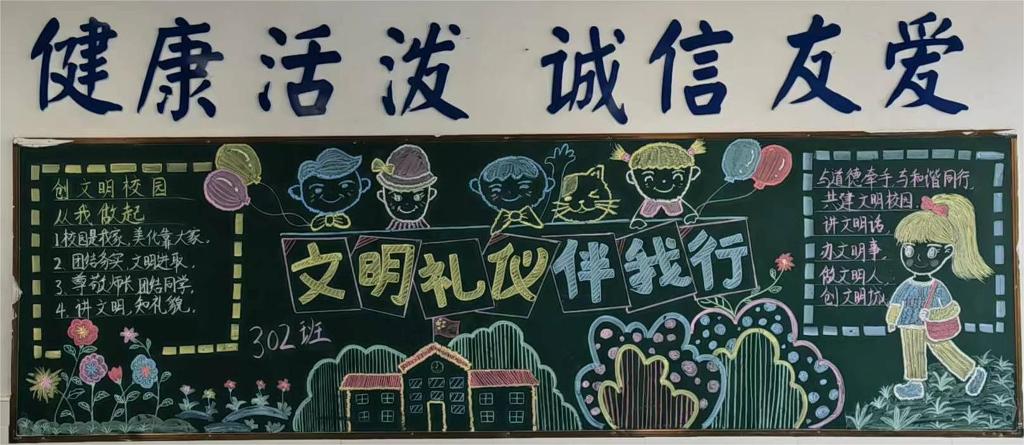 健康活泼 诚信友爱
创文明校园
从我做起
1.校园是我家,美化靠大家.
2.团结务实,文明进取
3.尊敬师长,团结同学.
4.讲文明,知礼貌.
文明礼仪伴我行
302班
与道德牵手,与和谐同行
共建文明校园
讲文明话,
办文明事,
做文明人,
创文明城